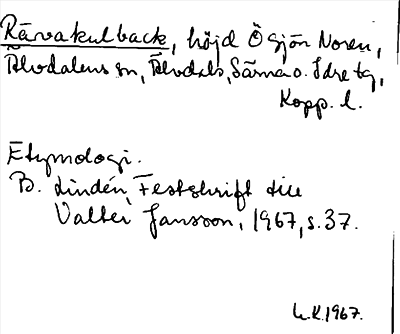 Rävakulback, höjd Ö sjön Noren,
Älvdalens sn, Älvdals, Särna o. Idre tg,
Kopp. l.
Etymologi.
B. Lindén, Festskrift till
Valter Jansson, 1967, s. 37.
L.K. 1967.